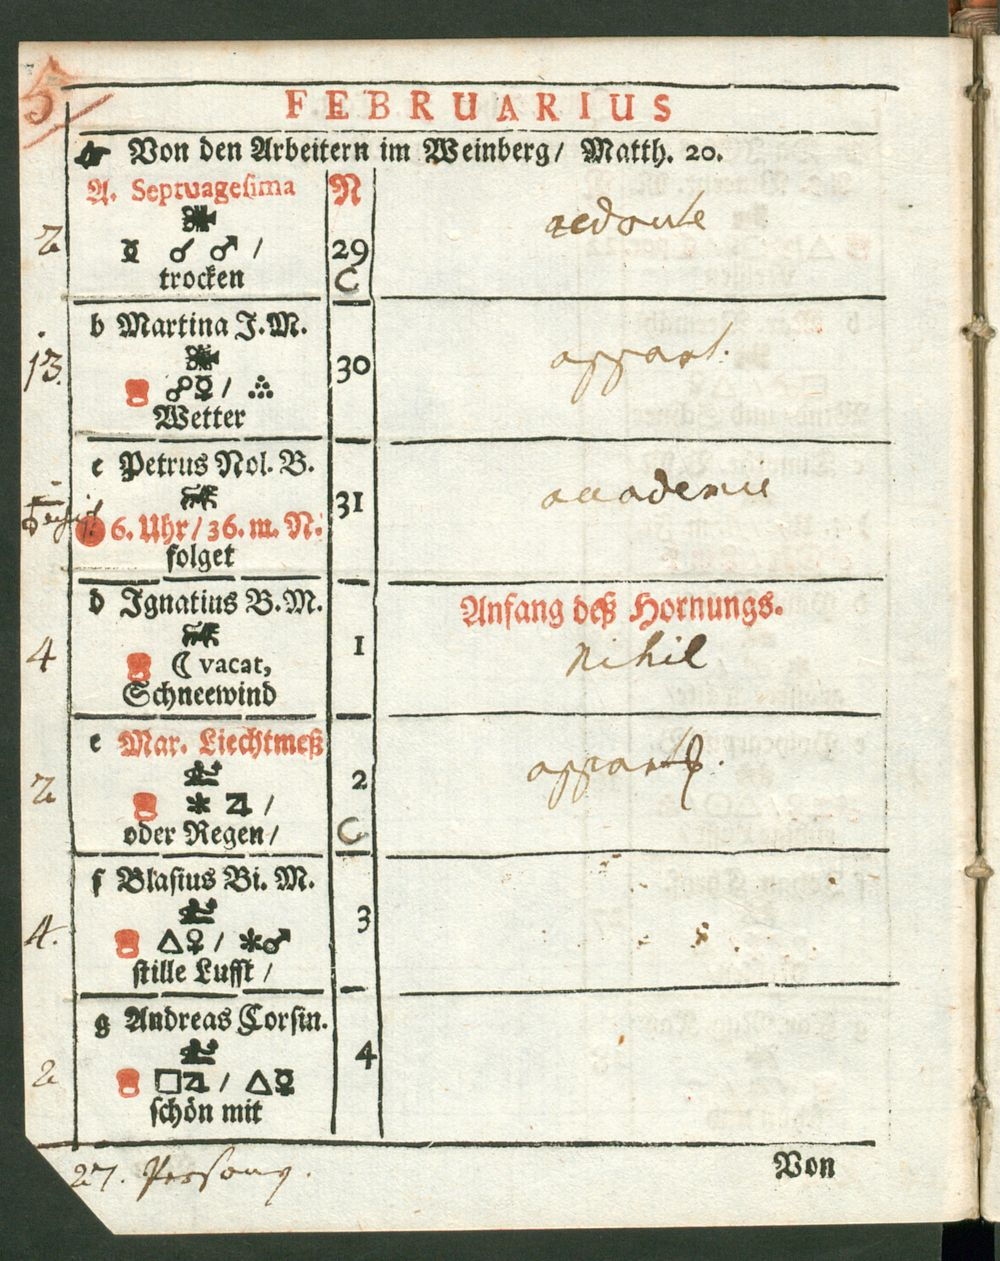 5
FEBRUARIUS
Von den Arbeitern im Weinberg/ Matth. 20.
A. Septuagesima N
2 ☿ ☌ ♂ / 29 redoute
trocken C
b Martina J.M.
13. ☍☿ / 30 appart.
Wetter
c Petrus Nol. B.
31 accademie
6. Uhr/36. m. N.
folget
d Ignatius B.M. Anfang deß Hornungs.
4 ☾ vacat, 1 nihil
Schneewind
e Mar. Liechtmeß
2 * ♃ / 2 appart
oder Regen/ C
f Blasius Bi. M.
4. △♀ / *♂ 3
stille Lufft /
g Andreas Corsin.
2 □♃ / △☿ 4
schön mit
Von
27. Persony.